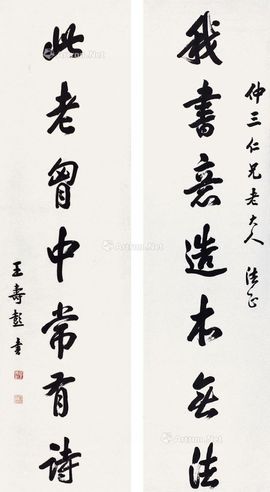 仲三仁兄老大人 法正
我書意造本無法
此老胷中常有詩
王壽彭書